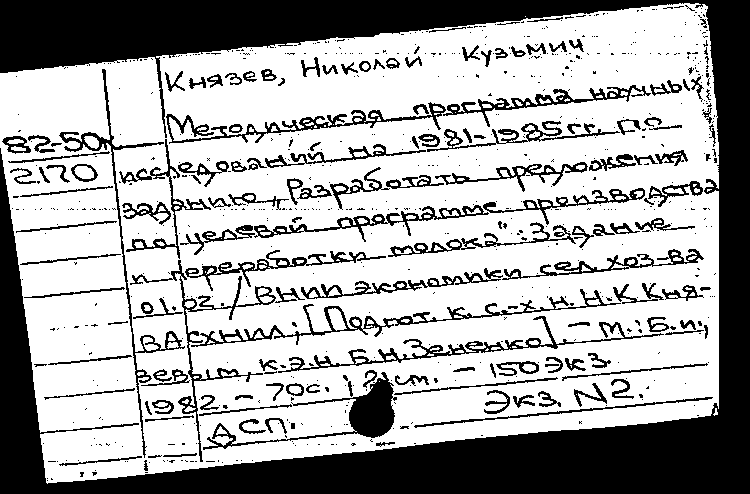 Князев, Николай Кузьмич
Методическая программа научных
82-50к
2170
исследований на 1981-1985 гг. по
заданию „Разработать предложения
по целевой программе производства
и переработки молока": Задание
01.02. / ВНИИ экономики сел. хоз-ва
ВАСХНИЛ; [Подгот. к. с.-х. н. Н.К Кня-
зевым, к.э.н. Б.Н. Зененко]. – М.: Б.и.,
1982. – 70с. ; 21 см. – 150 экз.
ДСП. Экз. N2.